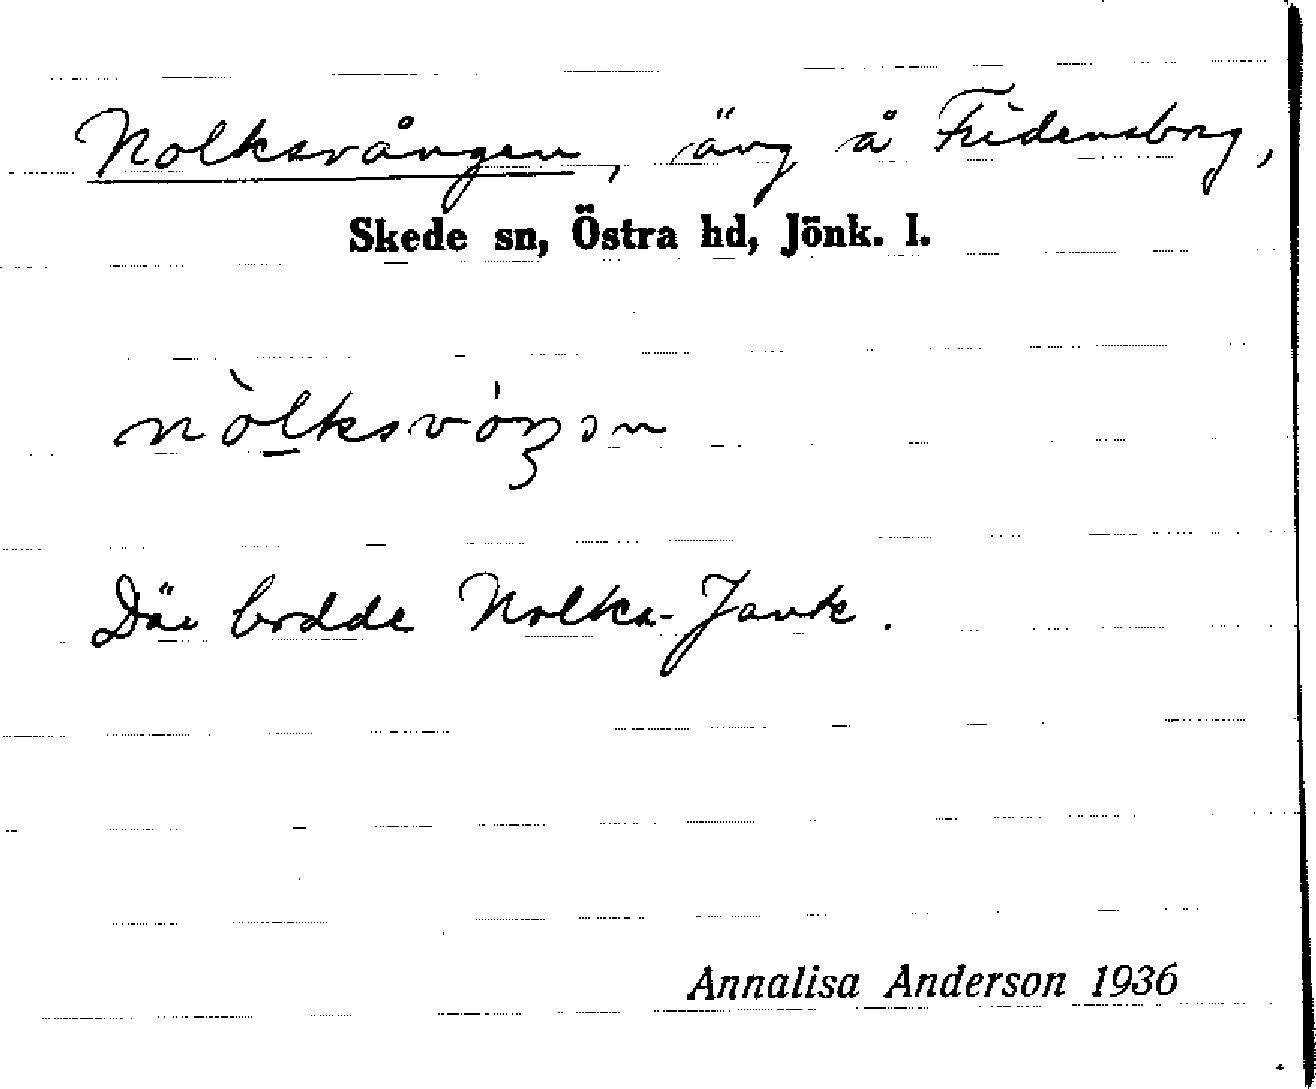 Nolksvången, äng å Fridensborg,
Skede sn, Östra hd, Jönk. l.
nòlksvóŋən
Där bodde Nolka-Jank.
Annalisa Anderson 1936